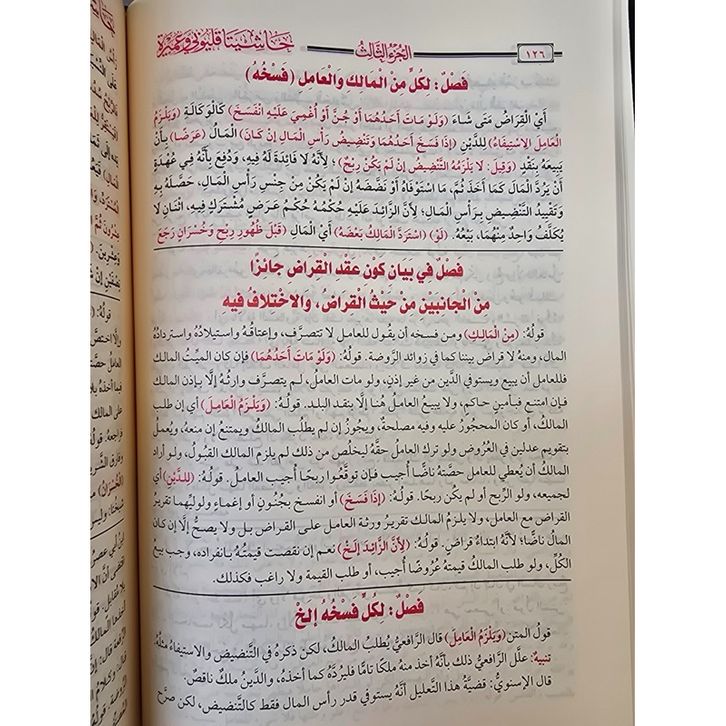 ١٢٦
الجزء الثالث
حاشيتا قليوبي وعميرة
فَصْلٌ: لِكُلٍّ مِنَ الْمَالِكِ وَالْعَامِلِ (فَسْخُهُ)
أَيْ الْقِرَاضِ مَتَى شَاءَ (وَلَوْ مَاتَ أَحَدُهُمَا أَوْ جُنَّ أَوْ أُغْمِيَ عَلَيْهِ انْفَسَخَ) كَالْوَكَالَةِ (وَيَلْزَمُ
الْعَامِلَ الِاسْتِيفَاءُ) لِلدَّيْنِ (إذَا فَسَخَ أَحَدُهُمَا وَتَنْضِيضُ رَأْسِ الْمَالِ إنْ كَانَ) الْمَالُ (عَرَضًا) بِأَنْ
يَبِيعَهُ بِنَقْدٍ (وَقِيلَ: لَا يَلْزَمُهُ التَّنْضِيضُ إنْ لَمْ يَكُنْ رِبْحٌ)؛ لِأَنَّهُ لَا فَائِدَةَ لَهُ فِيهِ، وَدُفِعَ بِأَنَّهُ فِي عُهْدَةِ
أَنْ يَرُدَّ الْمَالَ كَمَا أَخَذَ ثُمَّ، مَا اسْتَوْفَاهُ أَوْ نَضَّضَهُ إنْ لَمْ يَكُنْ مِنْ جِنْسِ رَأْسِ الْمَالِ، حَصَّلَهُ بِهِ
وَتَقْيِيدُ التَّنْضِيضِ بِرَأْسِ الْمَالِ؛ لِأَنَّ الزَّائِدَ عَلَيْهِ حُكْمُهُ حُكْمُ عَرَضٍ مُشْتَرَكٍ فِيهِ، اثْنَانِ لَا
يُكَلَّفُ وَاحِدٌ مِنْهُمَا، بَيْعَهُ. (لَوْ) (اسْتَرَدَّ الْمَالِكُ بَعْضَهُ) أَيْ الْمَالِ (قَبْلَ ظُهُورِ رِبْحٍ وَخُسْرَانٍ رَجَعَ
فَصْلٌ في بَيَان كَوْن عَقْدِ القِرَاض جَائزًا
مِنَ الْجَانِبَينِ مِنْ حَيْثُ القِرَاضُ، وَالاخْتِلَافُ فِيه
قولهُ: (مِنْ الْمَالِكِ) ومن فسخه أن يقُول للعامل لا تتصرَّف، وإعتاقُهُ واستيلادُهُ واستردادُهُ
المال، ومنهُ لا قراض بيننا كما في زوائد الرَّوضة. قولُهُ: (وَلَوْ مَاتَ أَحَدُهُمَا) فإن كان الميِّتُ المالك
فللعامل أن يبيع ويستوفي الدَّين من غير إذنٍ، ولو مات العاملُ، لم يتصرَّف وارثُهُ إلَّا بإذن المالك
فإن امتنع فبأمين حاكمٍ، ولا يبيعُ العاملُ هُنا إلَّا بنقد البلد. قولُهُ: (وَيَلْزَمُ الْعَامِلَ) أي إن طلب
المالكُ، أو كان المحجُورُ عليه وفيه مصلحةٌ، ويجُوزُ إن لم يطلُب المالكُ ويمتنعُ إن منعهُ، ويُعملُ
بتقويم عدلين في العُرُوض ولو ترك العاملُ حقَّهُ ليخلُص من ذلك لم يلزم المالك القبُولُ، ولو أراد
المالكُ أن يُعطي للعامل حصَّتهُ ناضًّا أُجيب فإن توقَّعُوا ربحًا أُجيب العاملُ. قولُهُ: (لِلدَّيْنِ) أي
لجميعه، ولو الرِّبح أو لم يكُن ربحًا. قولُهُ: (إذَا فَسَخَ) أو انفسخ بجُنُونٍ أو إغماءٍ ولوليِّهما تقريرُ
القراض مع العامل، ولا يلزمُ المالك تقريرُ ورثة العامل على القراض بل ولا يصحُّ إلَّا إن كان
المالُ ناضًّا؛ لأنَّهُ ابتداءُ قراضٍ. قولُهُ: (لِأَنَّ الزَّائِدَ إلَخْ) نعم إن نقصت قيمتُهُ بانفراده، وجب بيع
الكُلِّ، ولو طلب المالكُ قيمتهُ عُرُوضًا أُجيب، أو طلب القيمة ولا راغب فكذلك.
فَصْلٌ: لِكُلٍّ فَسْخُهُ إلَخْ
قولُ المتن (وَيَلْزَمُ الْعَامِلَ) قال الرَّافعيُّ يُطلبُ المالكُ، لكن ذكرهُ في التَّنضيض والاستيفاءُ مثلُهُ.
تنبيهٌ: علَّل الرَّافعيُّ ذلك بأنَّهُ أخذ منهُ ملكًا تامًّا فليرُدَّهُ كما أخذهُ، والدَّينُ ملكٌ ناقصٌ.
قال الإسنويُّ: قضيَّةُ هذا التَّعليل أنَّهُ يستوفي قدر رأس المال فقط كالتَّنضيض، لكن صرَّح